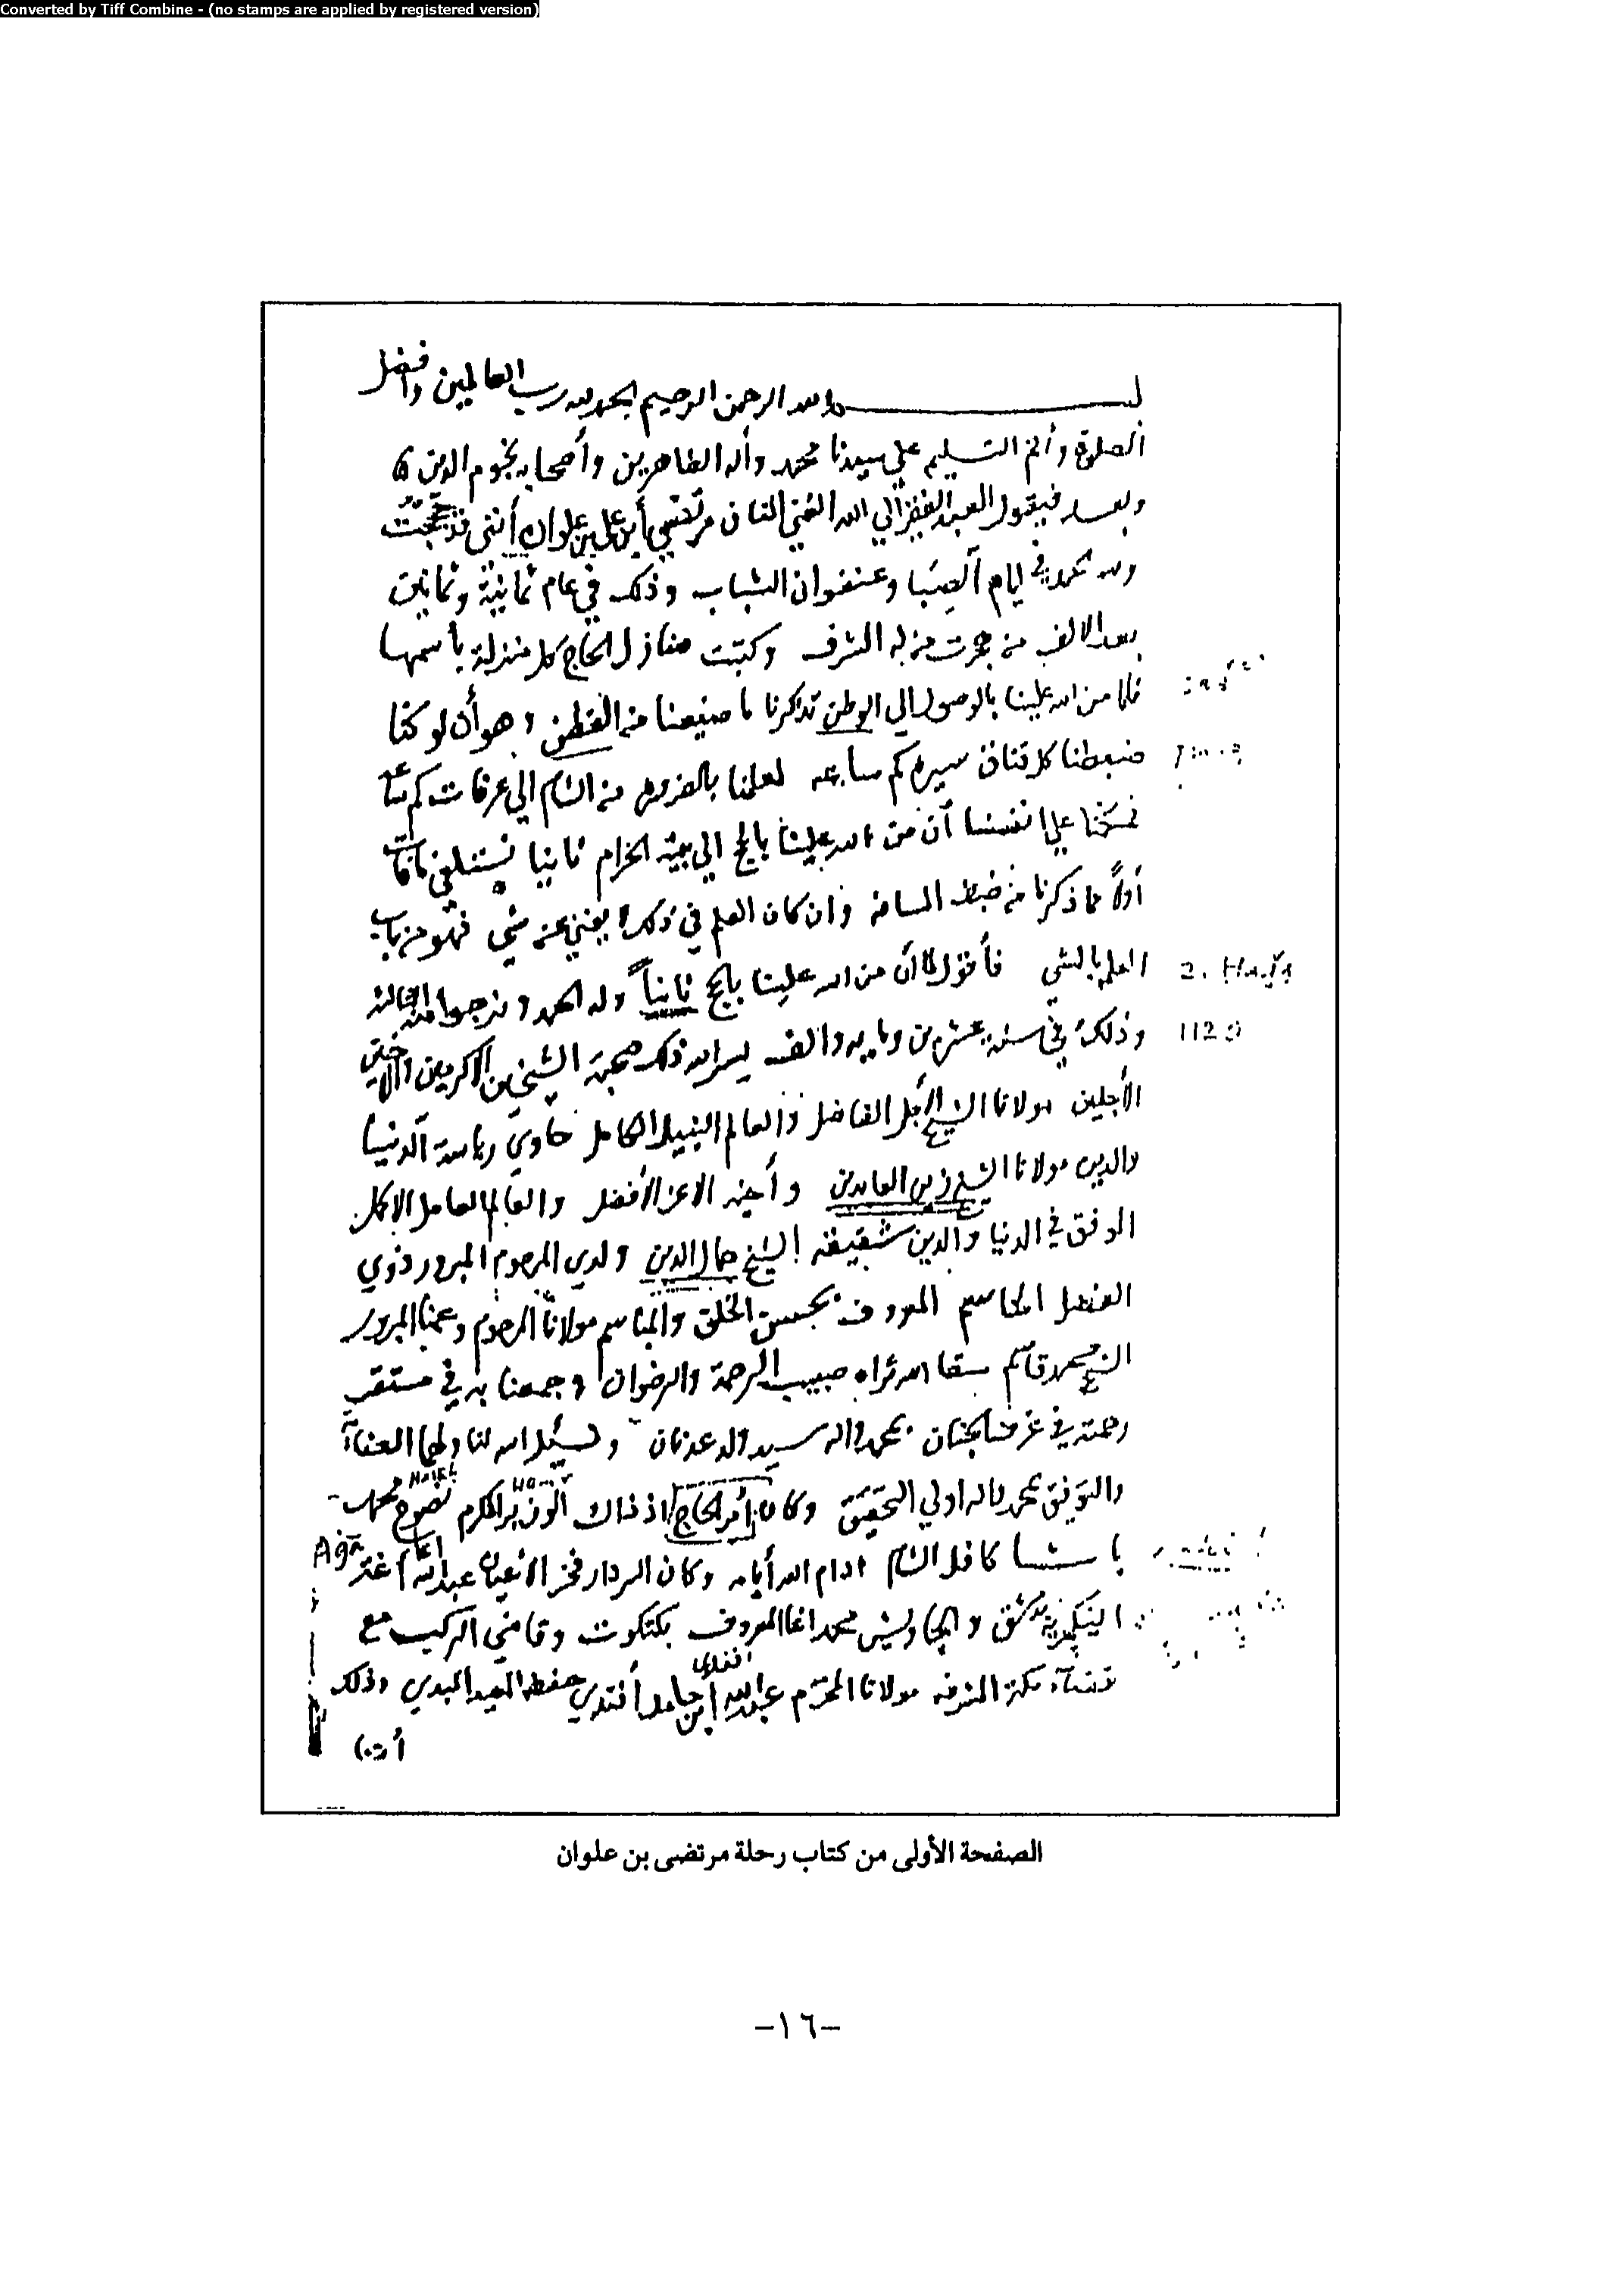 Converted by Tiff Combine - (no stamps are applied by registered version)
بسم الله الرحمن الرحيم الحمد لله رب العالمين وأفضل
الصلوة وأتم التسليم على سيدنا محمد وأله الطاهرين وأصحابه نجوم الدين
وبعد فيقول العبد الفقير إلي الله الغني مرتضي أبن علي بن علوان أنني قد حججت
ولله الحمد في ايام الصبا وعنفوان الشباب وذلك في عام ثمانية وثمانين
بعد الالف من هجرت من له الشرف وكتبت منازل الحاج كل منزلة بأسمها
فلما من الله علينا بالوصول الي الوطن تذكرنا ما ضيعنا من الفطن وهو أن لو كنا
ضبطنا كل قناق سيره كم ساعه لعلمنا بالضروره من الشام الي عرفات كم
علي انفسنا أن من الله علينا بالحج الي بيته الحرام ثانيا نستلقي مافات
أولاً مما ذكرنا من ضبط المسافه وان كان العلم في ذلك لا يغني عن شي فهو من باب
العلم بالشي فأقول لما أن من الله علينا بالحج ثانياً وله الحمد ونرجوا منه الثالثه
2. Hağğ
وذلك في سنة عشرين ومايه والف يسر الله ذلك صحبة الشيخين الأكرمين والاخين
1120
الأجلين مولانا الشيخ الأجل الفاضل والعالم النبيل الكامل حاوي رياسة الدنيا
والدين مولانا الشيخ زين العابدين وأخيه الاعز الأفضل والعالم العامل الاكمل
الموفق في الدنيا والدين شقيقه الشيخ جمال الدين ولدي المرحوم المبرور ذوي
الفضل المعروف بحسن الخلق والمباسم مولانا المرحوم وعمنا المبرور
الشيخ محمد قاسم سقا الله ثراه صبيب الرحمة والرضوان وجمعنا به في مستقر
رحمته في غرف الجنان بمحمد واله سيد ولد عدنان ونسئل الله لنا ولهما
والتوفيق بمحمد واله اولي التحقيق وكان أمير الحاج اذ ذاك الوزير المكرم نصوح محمد
باشا كافل الشام ادام الله أيامه وكان السردار فخر الأعيان عبدالله أغا
Ağā
الينكجرية بدمشق والجاويش محمد اغا المعروف بكتكوت وقاضي الركب مع
قضاء مكة المشرفه مولانا المحترم عبدالله أفندي ابن حامد أفندي حفظه المعيد المبدي وذلك
أننا
الصفحة الأولى من كتاب رحلة مرتضى بن علوان
-١٦-